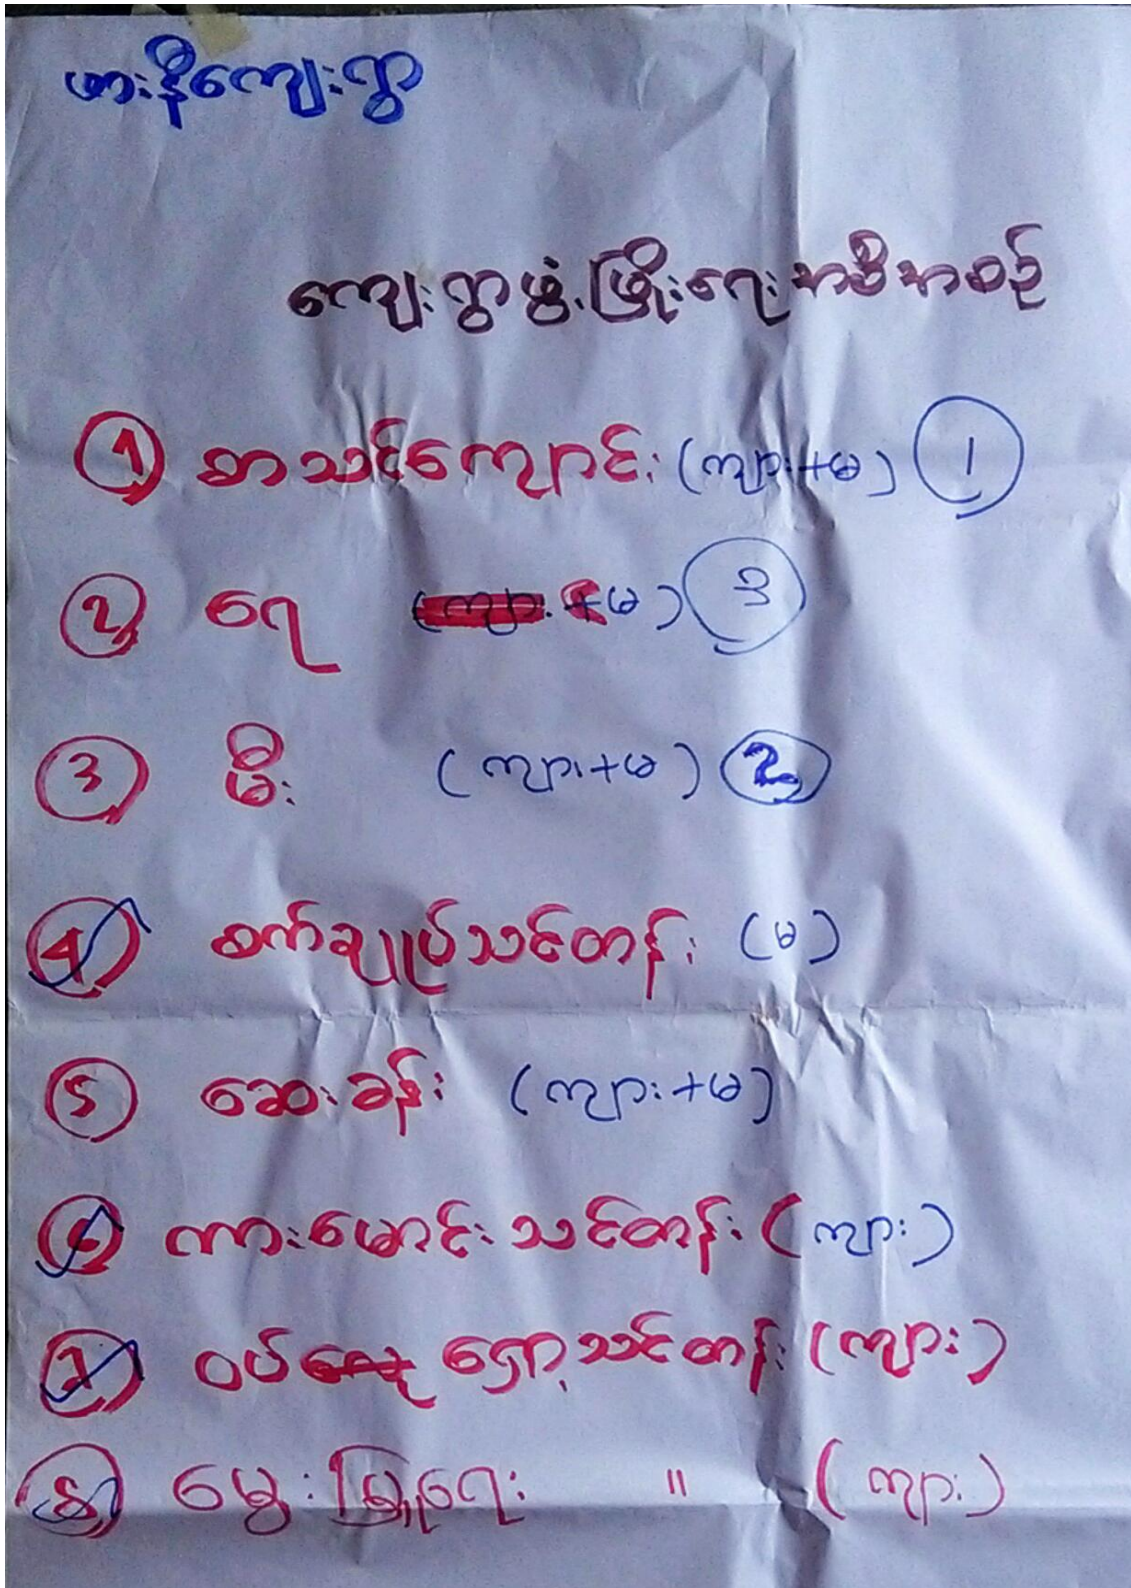 ဖားနီကျေးရွာ
ကျေးရွာဖွံ့ဖြိုးရေးအစီအစဉ်
၁ စာသင်ကျောင်း (ကျား+မ) ၁
၂ ရေ (ကျား+မ) ၃
၃ မီး (ကျား+မ) ၂
၄ စက်ချုပ်သင်တန်း (မ)
၅ ဆေးခန်း (ကျား+မ)
၆ ကားမောင်းသင်တန်း (ကျား)
၇ ဝပ်ရှော့သင်တန်း (ကျား)
၈ မွေးမြူရေး " (ကျား)